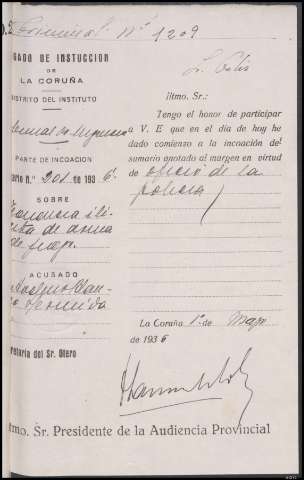 Criminal Nº 1209
GADO DE INSTUCCION
DE
LA CORUÑA
DISTRITO DEL INSTITUTO
PARTE DE INCOACION
ario n.º 201 de 1936
SOBRE
Tenencia ilí-
cita de arma
de fuego
ACUSADO
retaría del Sr. Otero
Iltmo. Sr.:
Tengo el honor de participar
a V. E que en el día de hoy he
dado comienzo a la incoación del
sumario anotado al margen en virtud
de oficio de la
policia
La Coruña 1º de Mayo
de 1936
ltmo. Sr. Presidente de la Audiencia Provincial